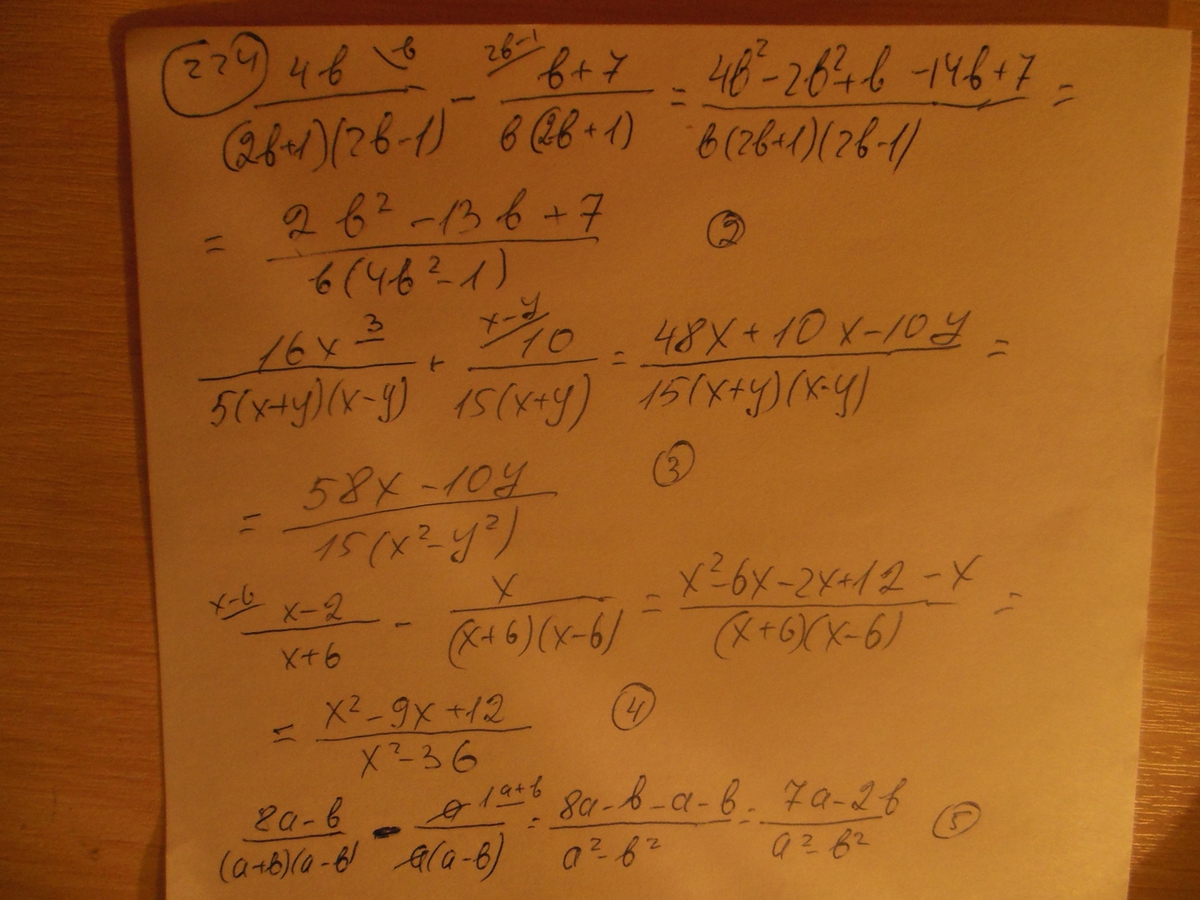 224 4b \b / (2b+1)(2b-1) - 2b-1/ b+7 / b(2b+1) = 4b²-2b²+b-14b+7 / b(2b+1)(2b-1) =
= 2b²-13b+7 / b(4b²-1) 2
16x 3 / 5(x+y)(x-y) + x-y/ 10 / 15(x+y) = 48x+10x-10y / 15(x+y)(x-y) =
= 58x-10y / 15(x²-y²) 3
x-6/ x-2 / x+6 - x / (x+6)(x-6) = x²-6x-2x+12-x / (x+6)(x-6) =
= x²-9x+12 / x²-36 4
8a-b / (a+b)(a-b) - a 1 a+b / a(a-b) = 8a-b-a-b / a²-b² = 7a-2b / a²-b² 5